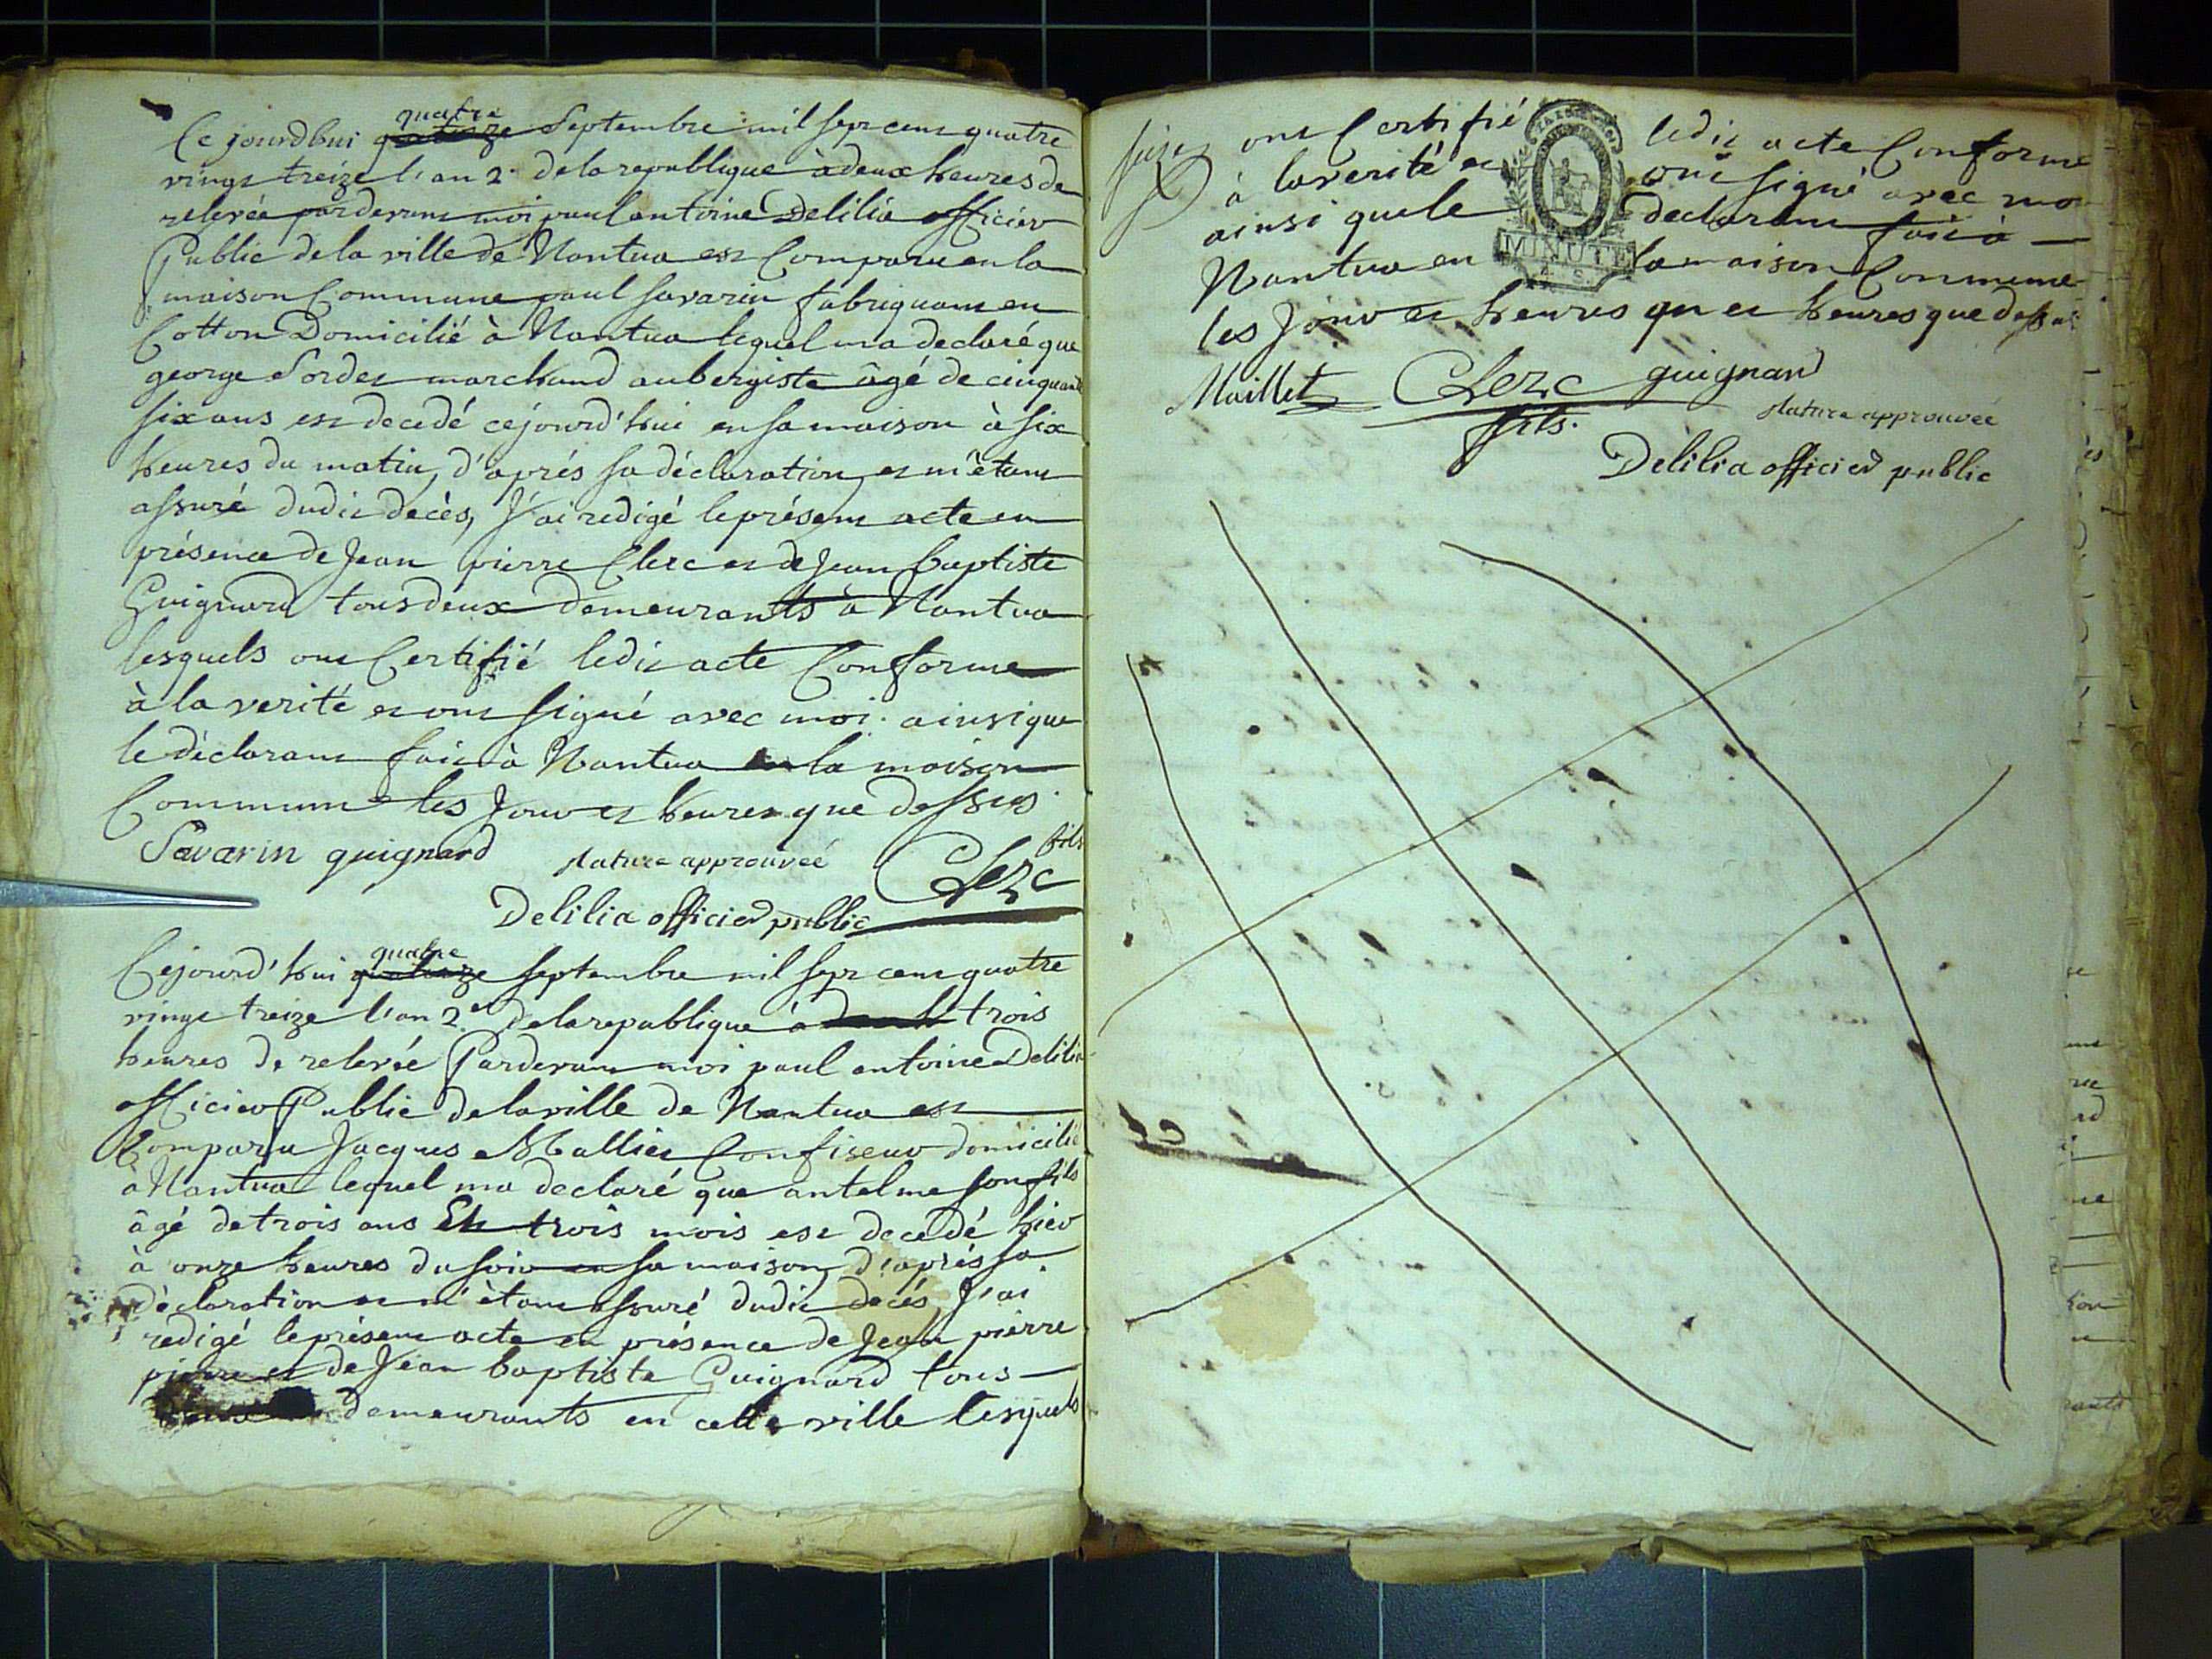 Ce jourdhui quatorze quatre Septembre mil sept cent quatre
vingt treize l'an 2e de la republique à deux heures de
relevée pardevant moi paul antoine Delilia officier
Public de la ville de Nantua est Comparu en la
maison Commune paul savarin fabriquant en
Cotton Domicilié à Nantua lequel ma declaré que
george Sordet marchand aubergiste âgé de cinquante
six ans est decedé cejourd'hui en sa maison à six
heures du matin, d'aprés sa déclaration et m'étant
assuré dudit decès, J'ai redigé le présent acte en
présence de Jean pierre Clerc et de Jean baptiste
Guignard tous deux demeurants à Nantua
lesquels ont Certifié ledit acte Conforme
à la verité et ont signé avec moi. ainsi que
le déclarant fait à Nantua en la maison
Commune les Jour et heures que dessus
Savarin guignard
rature approuveé
Clerc fils
Delilia officier public
Cejourd'hui quatorze quatre septembre mil sept cent quatre
vingt treize l'an 2e de la republique à trois
heures de relevée Pardevant moi paul antoine Delilia
officier Public de la ville de Nantua est
Comparu Jacques Malliet Confiseur domicilié
à Nantua lequel ma declaré que antelme son fils
âgé de trois ans Et trois mois est decedé hier
à onze heures du soir en sa maison d'aprés sa
déclaration et m'étant assuré dudit decés, J'ai
redigé le présent acte en présence de Jean pierre
pierre et de Jean baptiste Guignard tous
demeurants en cette ville lesquels
seize
ont Certifié ledit acte Conforme
à la verité et ont signé avec moi
ainsi que le declarant fait à
Nantua en la maison Commune
les Jour et heures que et heures que dessus
MINUTE
Maillet Clerc fils. guignard
rature approuveé
Delilia officier public